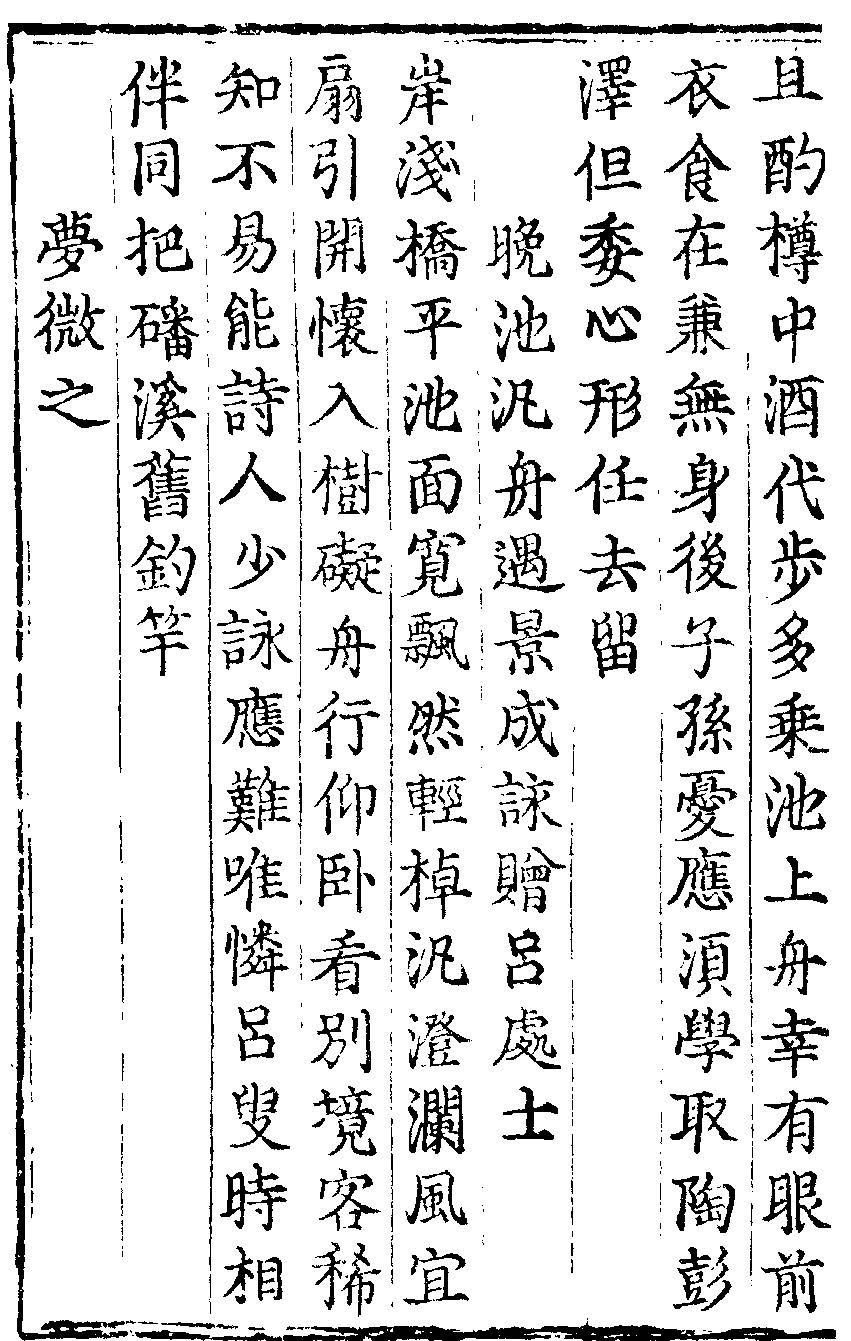 且酌樽中酒代步多乗池上舟幸有眼前
衣食在兼無身後子孫憂應須學取陶彭
澤但委心形任去留
晚池汎舟遇景成詠贈呂處士
岸淺橋平池面寬飄然輕棹汎澄瀾風宜
扇引開懷入樹礙舟行仰卧看別境客稀
知不易能詩人少詠應難唯憐呂叟時相
伴同把磻溪舊釣竿
夢微之